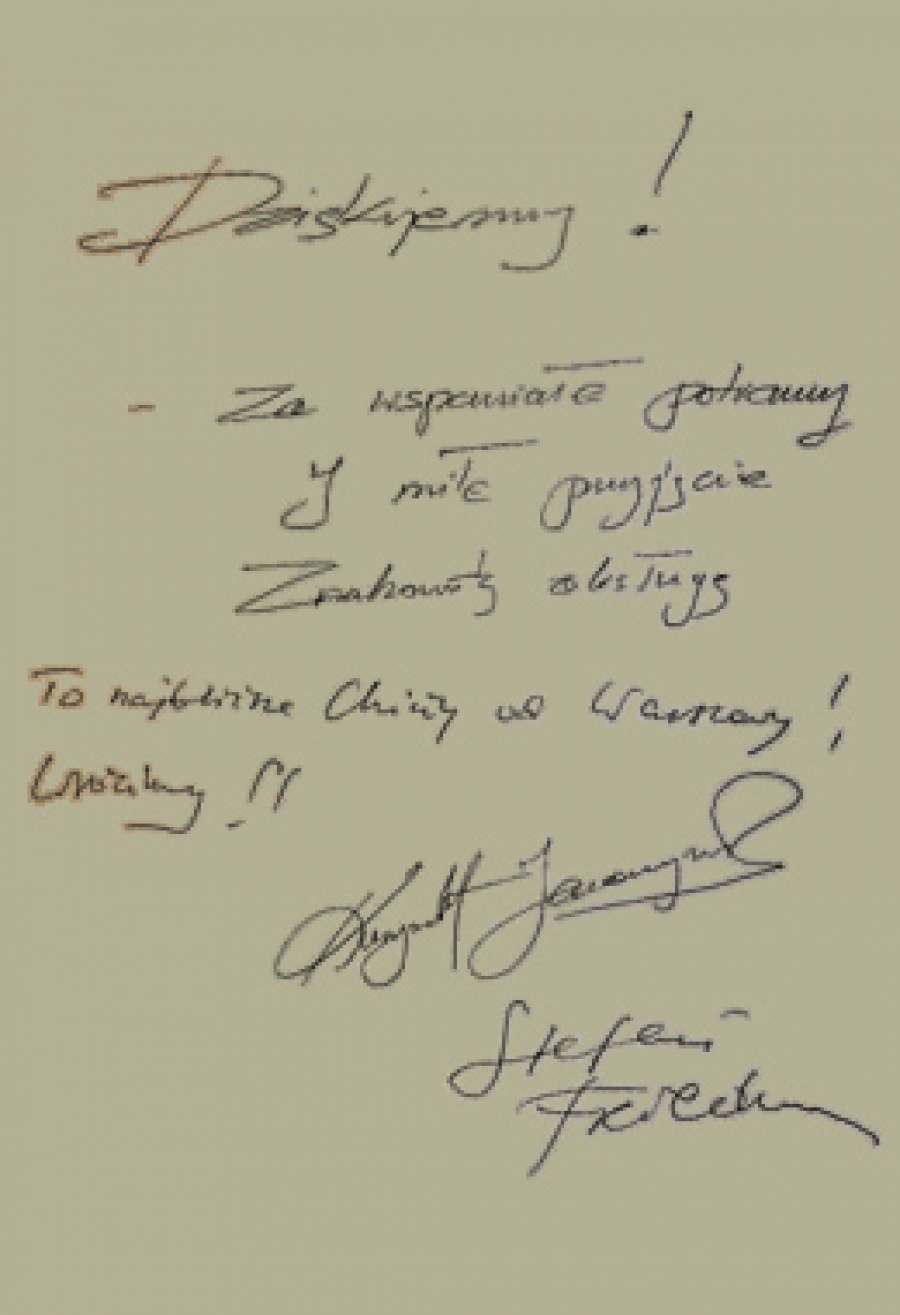 Dziękujemy!
- Za wspaniałe potrawy
I miłe przyjęcie
Znakomitą obsługę
To najbliższe Chiny od Warszawy!
Wrócimy!!
Krzysztof
Stefan